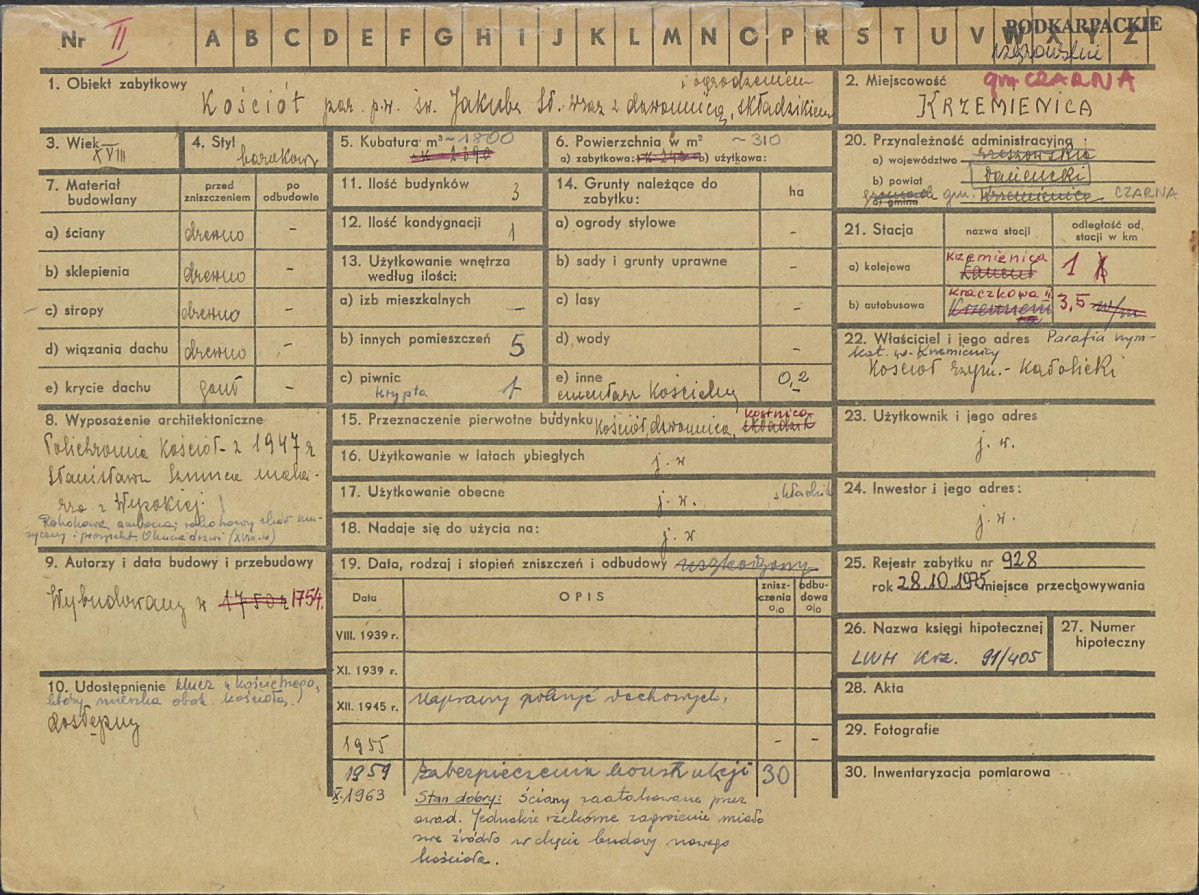 Nr II A B C D E F G H I J K L M N O P R S T U V W X Y Z
PODKARPACKIE
rzeszowskie
1. Obiekt zabytkowy
i ogrodzeniem
Kościół par. p.w. św. Jakuba St. wraz z dzwonnicą, składzikiem
2. Miejscowość gm CZARNA
KRZEMIENICA
3. Wiek
XVIII
4. Styl
barokowy
5. Kubatura m³ ~1800
6. Powierzchnia w m² ~310
a) zabytkowa: b) użytkowa:
20. Przynależność administracyjną
a) województwo rzeszowskie
b) powiat łańcucki
gromada gm. Krzemienica CZARNA
c) gmina
7. Materiał budowlany
przed zniszczeniem
po odbudowie
a) ściany drewno -
b) sklepienia drewno -
c) stropy drewno -
d) wiązania dachu drewno -
e) krycie dachu gont -
11. Ilość budynków 3
12. Ilość kondygnacji 1
13. Użytkowanie wnętrza według ilości:
a) izb mieszkalnych -
b) innych pomieszczeń 5
c) piwnic 1
krypta
14. Grunty należące do zabytku: ha
a) ogrody stylowe -
b) sady i grunty uprawne -
c) lasy -
d) wody -
e) inne 0,2
cmentarz kościelny
21. Stacja
nazwa stacji
odległość od stacji w km
a) kolejowa Krzemienica Łańcut 1
b) autobusowa Kraczkowa II Krzemienica 3,5 w/m
22. Właściciel i jego adres Parafia rzym-
kat. w Krzemienicy
Kościół rzym.-katolicki
8. Wyposażenie architektoniczne
Polichromia Kościół - z 1947 r
Stanisława Szmuca mala-
rza z Wysokiej.
Rokokowa ambona; rokokowy chór mu-
zyczny i prospekt. Okucia drzwi (XVIII w)
15. Przeznaczenie pierwotne budynku Kościół, dzwonnica, kostnica składzik
16. Użytkowanie w latach ubiegłych j. w
17. Użytkowanie obecne j. w. składnik
18. Nadaje się do użycia na: j. w
23. Użytkownik i jego adres
j. w.
24. Inwestor i jego adres:
j. w.
9. Autorzy i data budowy i przebudowy
Wybudowany w 1750 r 1754.
19. Data, rodzaj i stopień zniszczeń i odbudowy uszkodzony
Data
OPIS
znisz-czenia %
odbu-dowa %
VIII. 1939 r.
XI. 1939 r.
XII. 1945 r. Naprawy połaci dachowych.
1955 - -
1959 Zabezpieczenia konstrukcji 30
X.1963 Stan dobry: Ściany zaatakowane przez
owad. Jednakże rzekome zagrożenie miało
swe źródło w chęci budowy nowego
kościoła.
25. Rejestr zabytku nr 928
rok 28.10.1975 miejsce przechowywania
26. Nazwa księgi hipotecznej
LWH Krz. 91/405
27. Numer hipoteczny
10. Udostępnienie klucz u kościelnego,
który mieszka obok kościoła.
dostępny
28. Akta
29. Fotografie
30. Inwentaryzacja pomiarowa